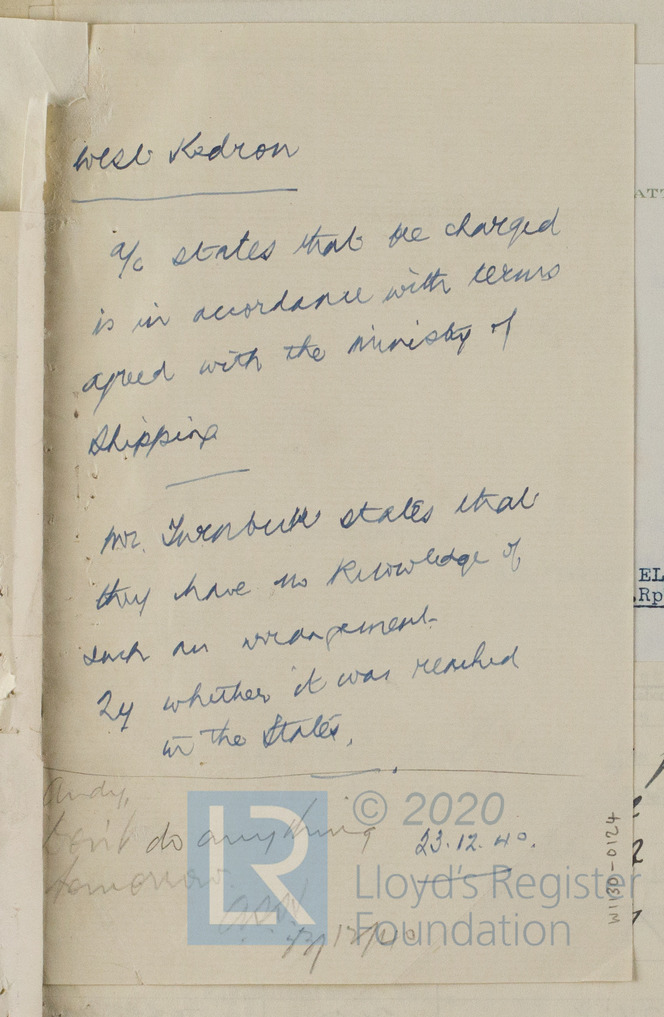 West Kedron
a/c states that fee charged
is in accordance with terms
agreed with the Ministry of
Shipping
Mr. Turnbull states that
they have no knowledge of
such an arrangement.
Qy whether it was reached
in the States.
Andy,
Don't do anything
tomorrow.
23.12.40.
© 2020
LR
Lloyd's Register
Foundation
W1130-0124
ATT
EL
.Rp